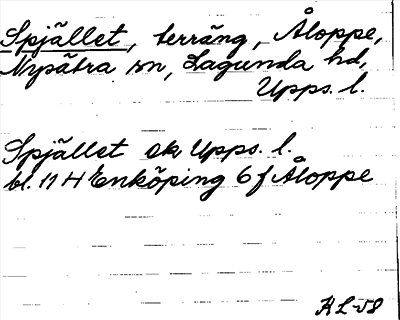 Spjället, terräng, Åloppe,
Nysätra sn, Lagunda hd,
Upps. l.
Spjället ek Upps. l.
bl. 11 H Enköping 6 f Åloppe
HL-58